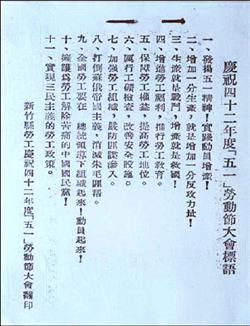 慶祝四十二年度「五一」勞動節大會標語
一、發揚五一精神!實踐動員增產!
二、增加一分生產,就是增加一分反攻力量!
三、生產就是戰鬥,增產就是救國!
四、增進勞工福利,推行勞工教育。
五、保障勞工權益,提高勞工地位。
六、厲行工礦檢查,改善安全設施。
七、加強勞工組織,嚴防匪諜滲入。
八、打倒蘇俄帝國主義,消滅朱毛匪幫。
九、全國勞工要在 總統領導下組織起來!動員起來!
十、擁護為勞工解除苦痛的中國國民黨!
十一、實現三民主義的勞工政策。
新竹縣勞工慶祝四十二年度「五一」勞動節大會翻印